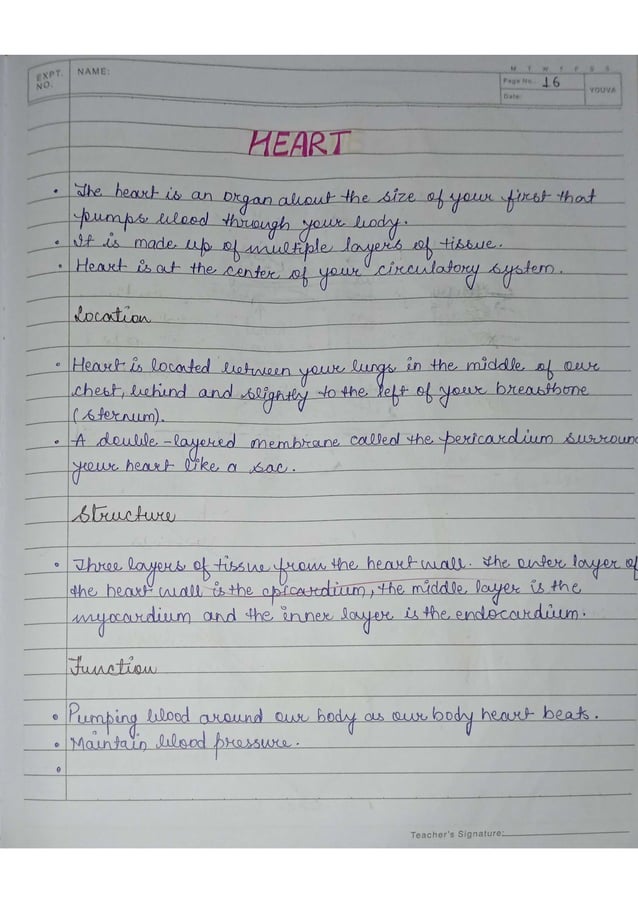 M T W T F S S
EXPT. NO.
NAME:
Page No. 16
YOUVA
Date:
HEART
• The heart is an organ about the size of your first that
pumps blood through your body.
• It is made up of multiple layers of tissue.
• Heart is at the center of your circulatory system.
Location
• Heart is located between your lungs in the middle of our
chest, behind and slightly to the left of your breastbone
(sternum).
• A double-layered membrane called the pericardium surroun
your heart like a sac.
Structure
• Three layers of tissue from the heart wall. The outer layer of
the heart wall is the epicardium, the middle layer is the
myocardium and the inner layer is the endocardium.
Function
• Pumping blood around our body as our body heart beats.
• Maintain blood pressure.
•
Teacher's Signature: